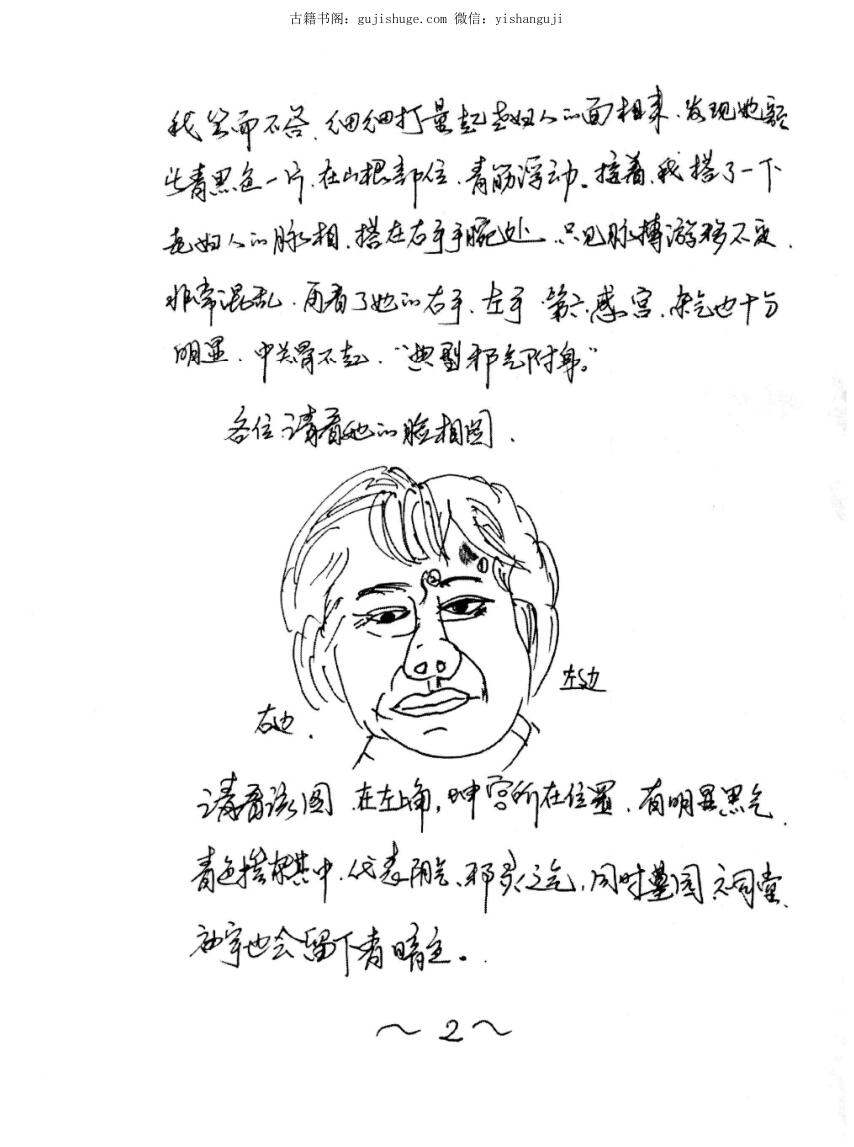 古籍书阁：gujishuge.com 微信：yishanguji
我笑而不答、细细打量起老妇人的面相来、发现她额
头青黑色一片、在山根部位、青筋浮动。接着、我搭了一下
老妇人的脉相、搭在右手手腕处、只见脉搏游移不定、
非常混乱、再看了她的右手、左手、第六感宫、杂气也十分
明显、中关骨不起、“典型邪气附身。”
各位请看她的脸相图、
左边
右边、
请看该图、在左上角，坤宫所在位置、有明显黑气、
青色掺杂其中、代表阴气、邪灵之气，同时墓园、祠堂、
庙宇也会留下青暗色。
～2～